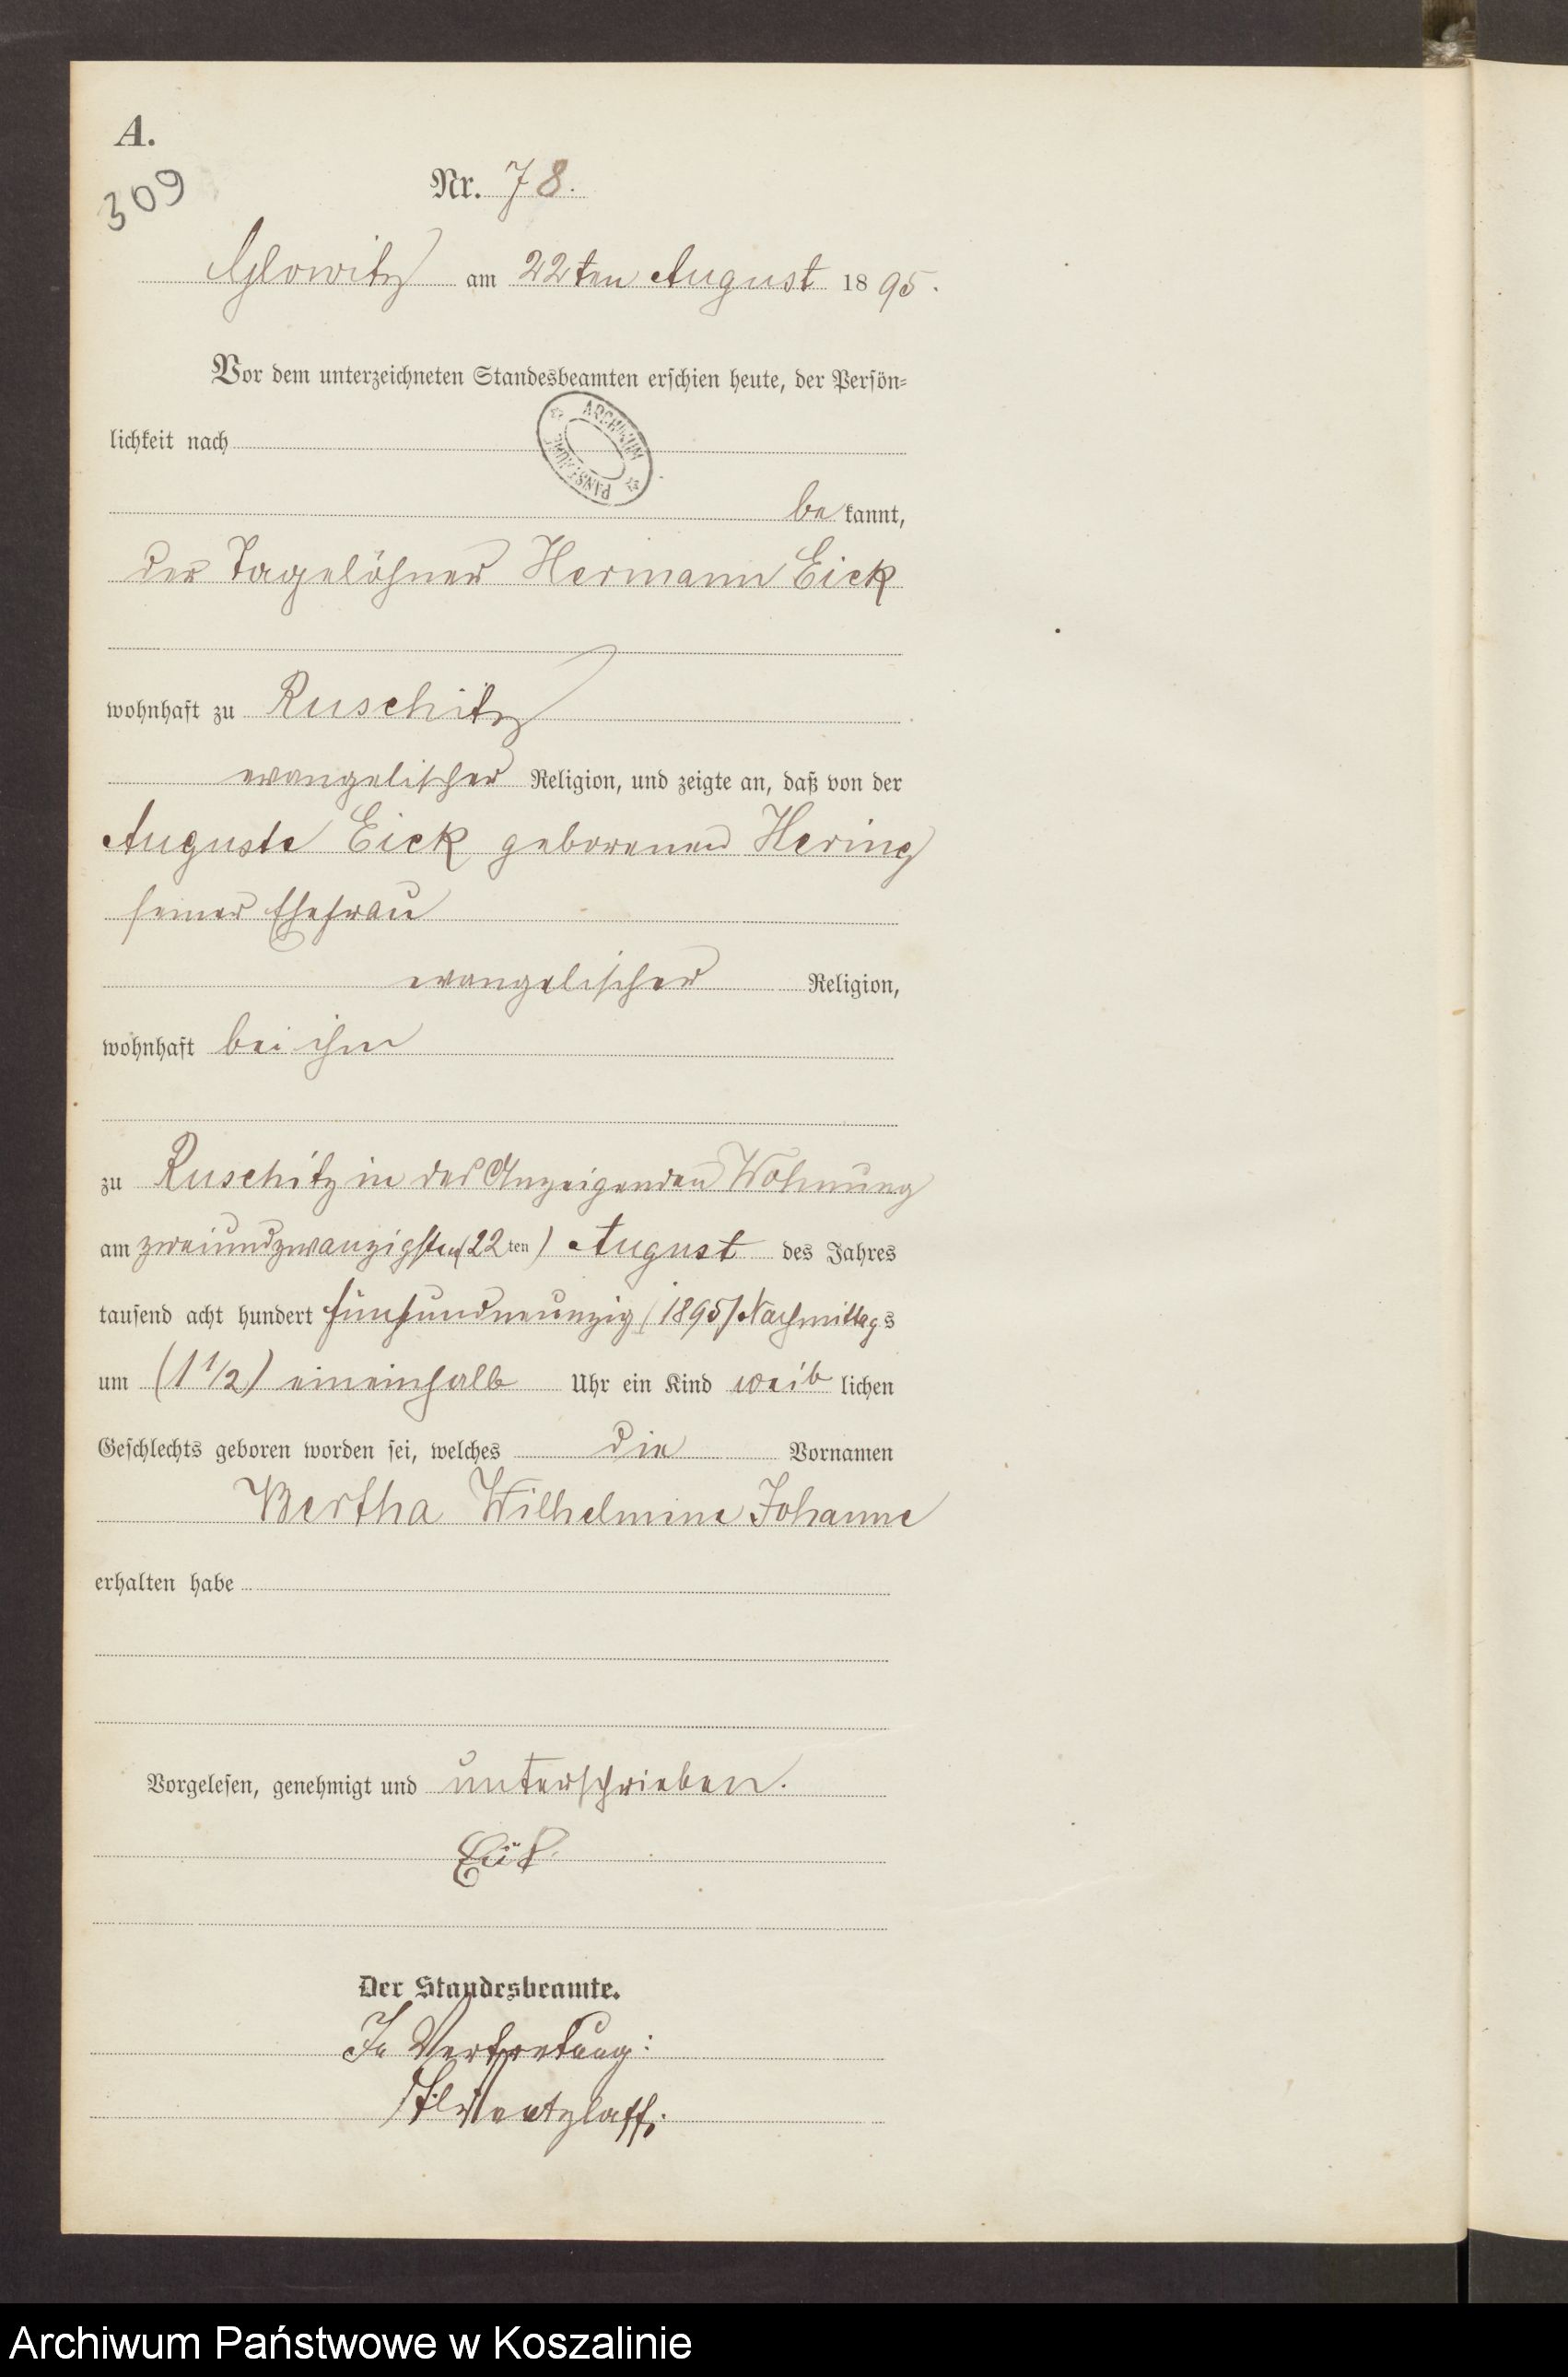 A.
309
Nr. 78.
Glowitz am 22ten August 1895.
Vor dem unterzeichneten Standesbeamten erschien heute, der Persön-
lichkeit nach
ARCHIWUM PAŃSTWOWE
bekannt,
der Tagelöhner Hermann Eick
wohnhaft zu Ruschitz
evangelischer Religion, und zeigte an, daß von der
Auguste Eick geborenen Hering
seiner Ehefrau
evangelischer Religion,
wohnhaft bei ihm
zu Ruschitz in des Anzeigenden Wohnung
am zweiundzwanzigsten (22ten) August des Jahres
tausend acht hundert fünfundneunzig (1895) Nachmittags
um (1 1/2) eineinhalb Uhr ein Kind weiblichen
Geschlechts geboren worden sei, welches die Vornamen
Bertha Wilhelmine Johanne
erhalten habe
Vorgelesen, genehmigt und unterschrieben.
Eick
Der Standesbeamte.
In Vertretung:
Wentzlaff.
Archiwum Państwowe w Koszalinie